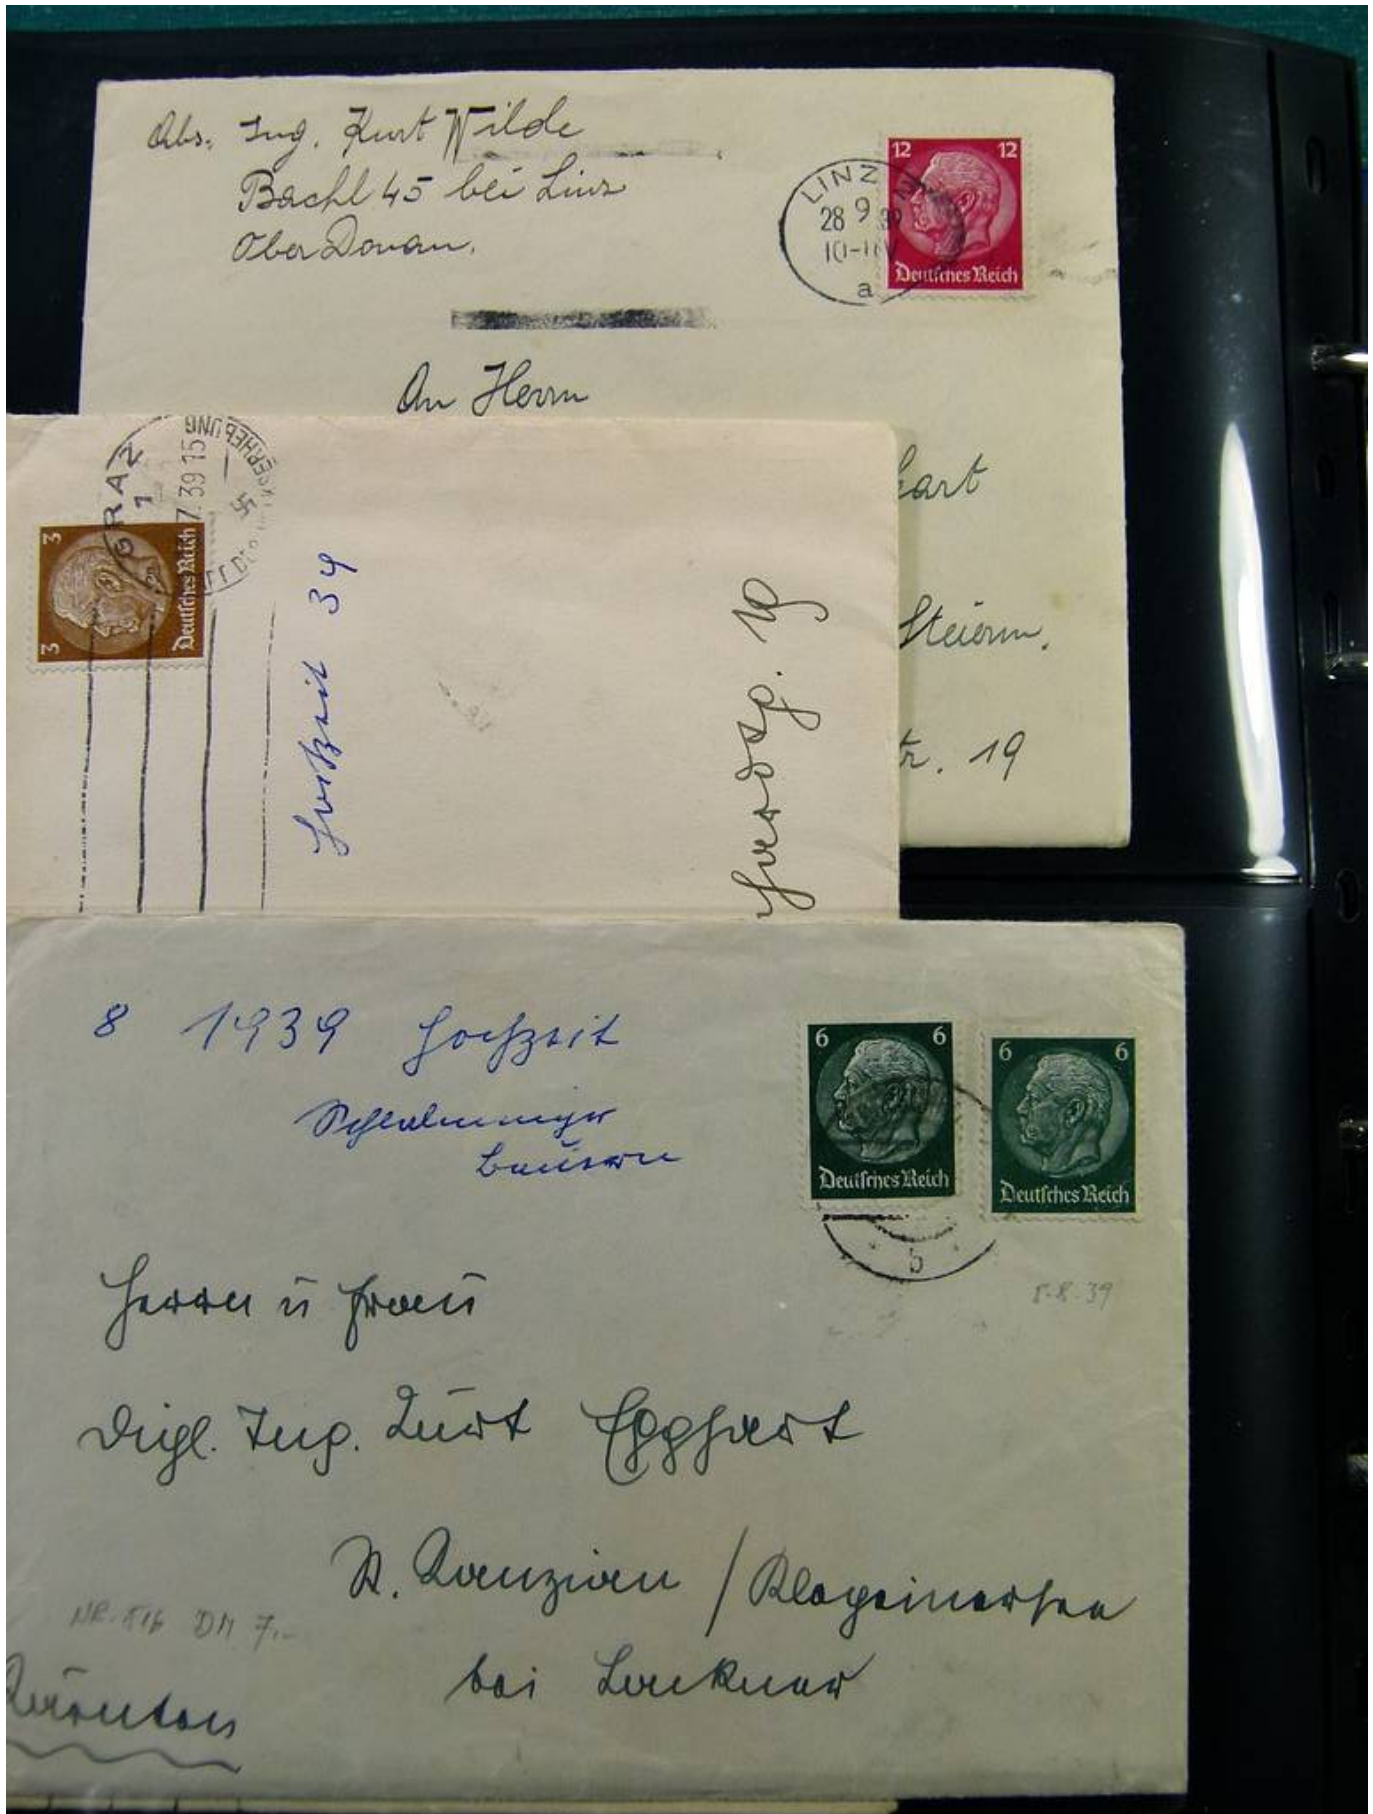 Abs. Ing. Kurt Wilde
Bachl 45 bei Linz
Ober Donau.
LINZ
28 9 39
10-11V
a
12 12
Deutsches Reich
An Herrn
hart
Steierm.
tr. 19
GRAZ
1
7.39 15
ERHEBUNG
3 3
Deutsches Reich
Hochzeit 39
8 1939 Hochzeit
Schladminger
Bauern
6 6
Deutsches Reich
6 6
Deutsches Reich
b
5.8.39
Herrn u Frau
Dipl. Ing. Kurt Egghart
St. Kanzian / Klopeinersee
bei
NR. 516 DM 7.-
Kärnten